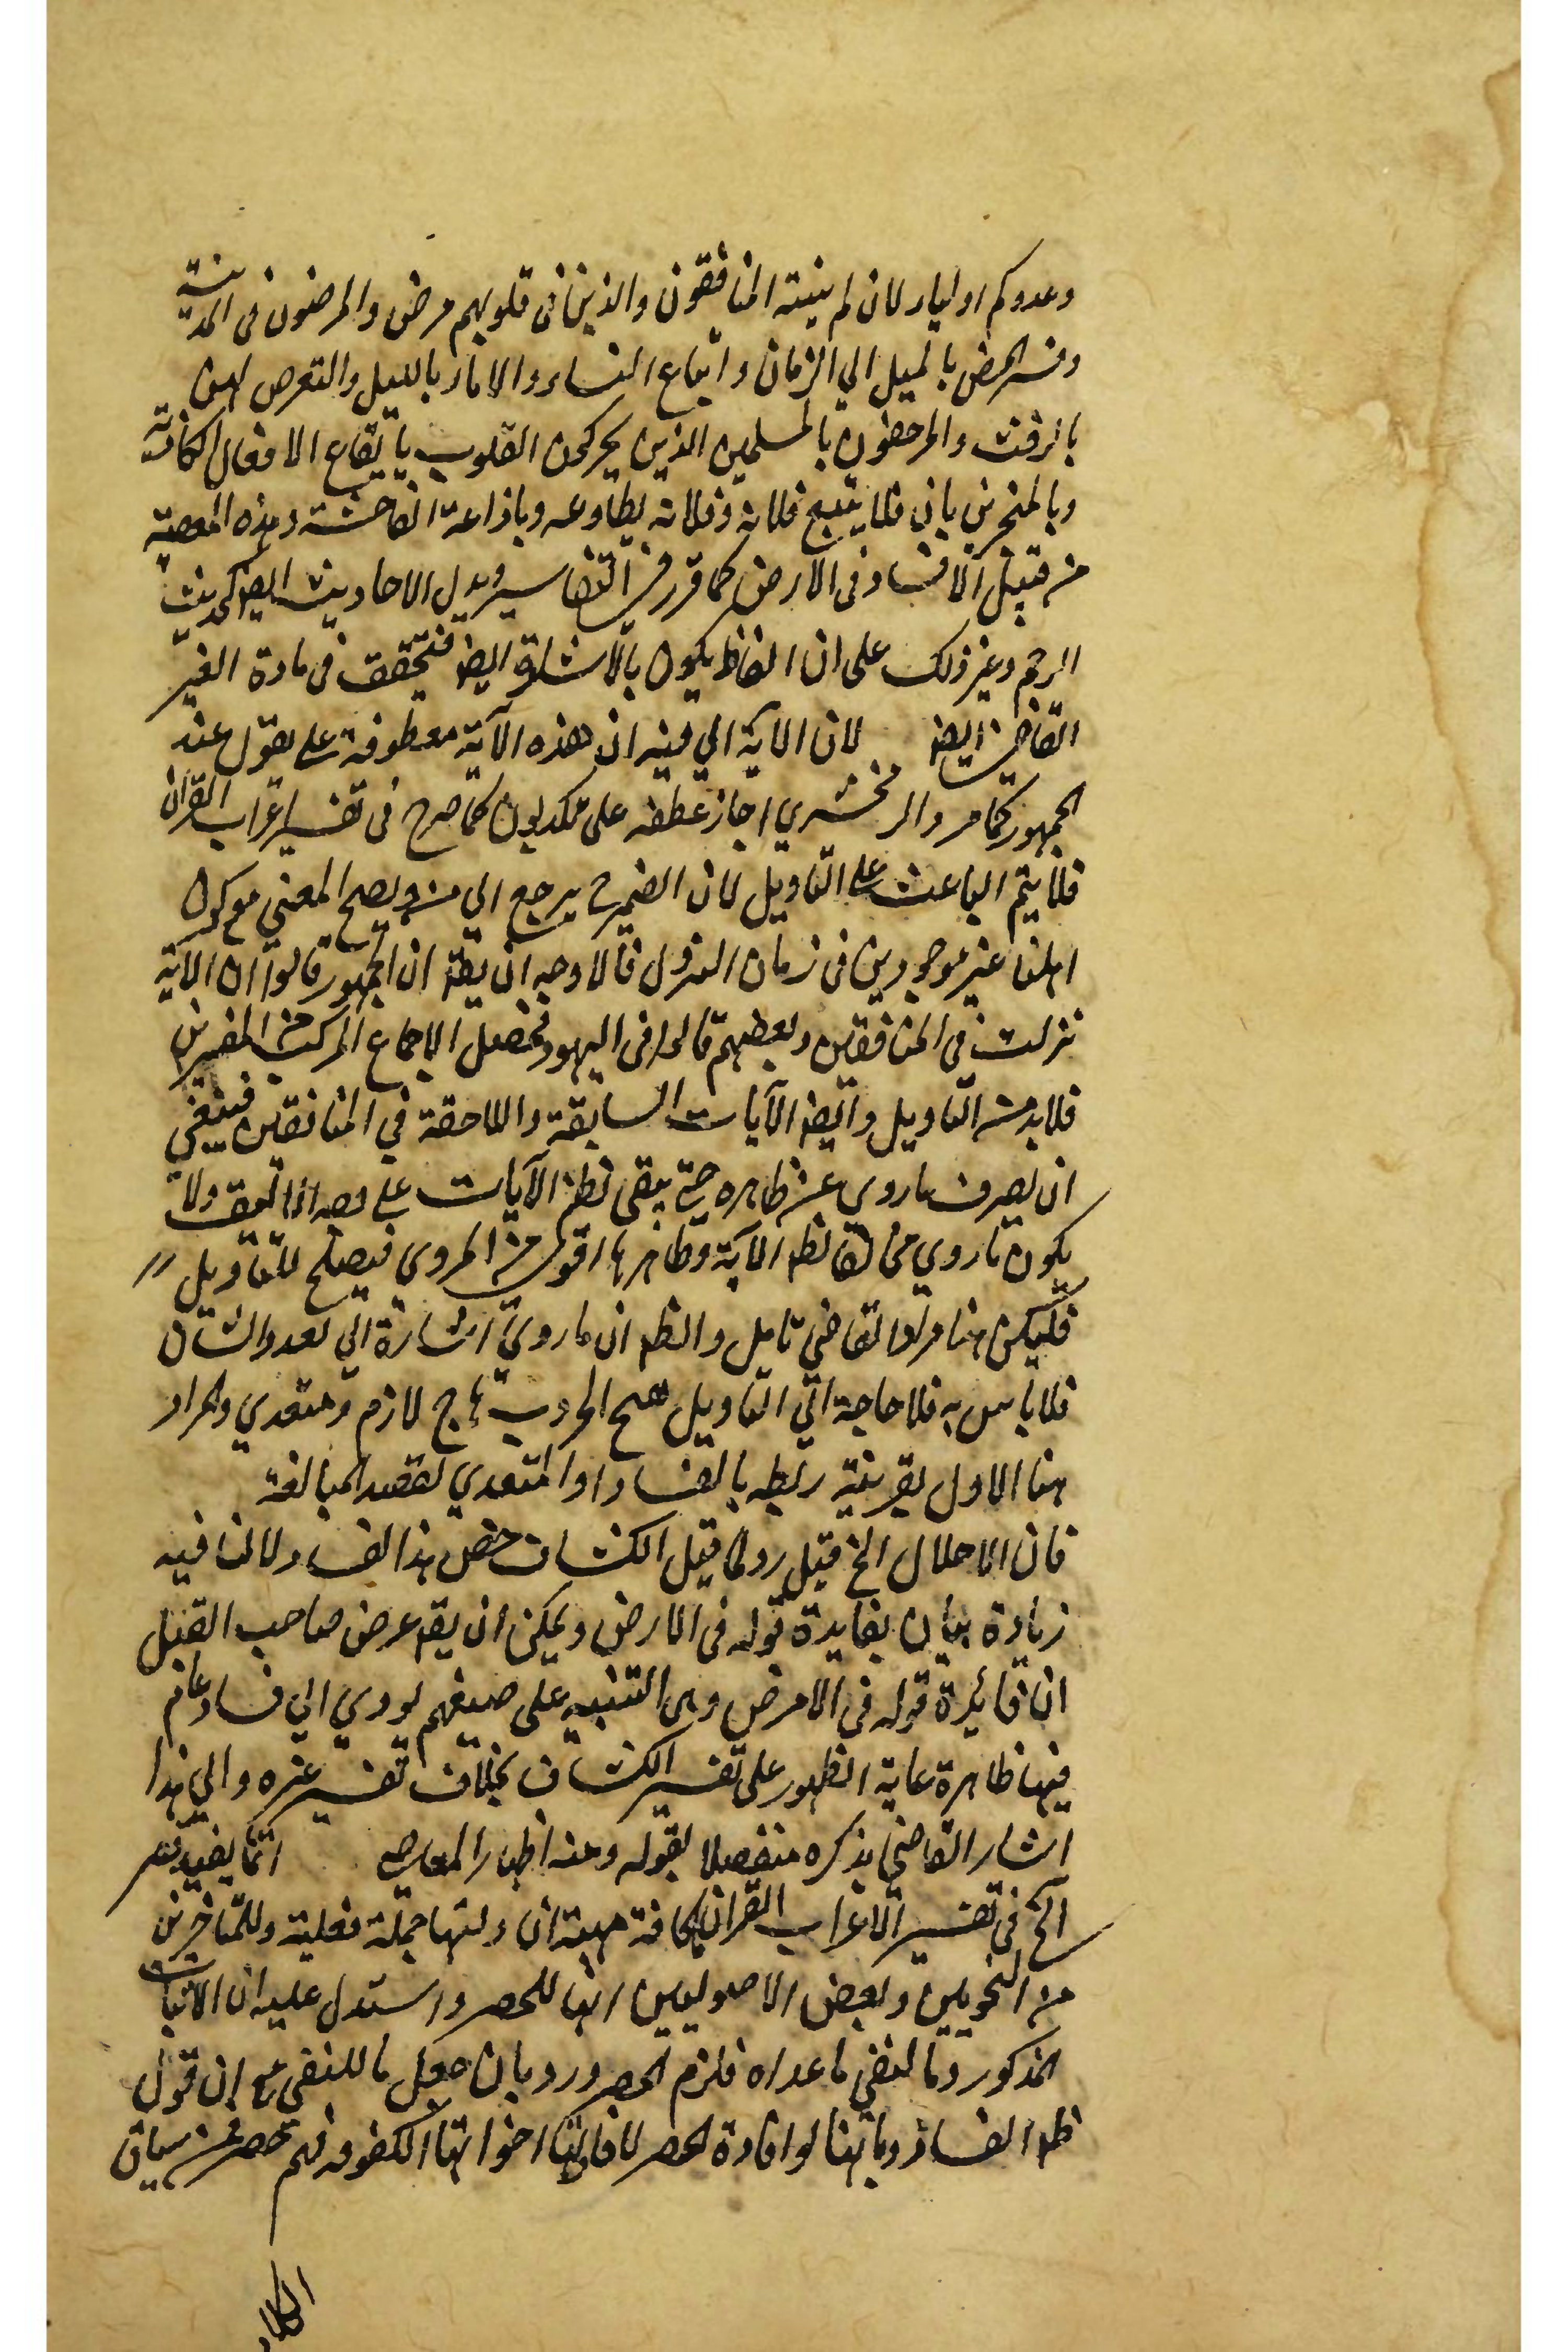 وعدوكم اولياء لان لم ينته المنافقون والذين فى قلوبهم مرض والمرجفون فى المدينة
وفسر المرض بالميل الي الزمان واتباع النساء والاماء بالليل والتعرض لهن
بالرفث والمرجفون بالمسلمين الذين يحركون القلوب بايقاع الافعال الكاذبة
وبالمخبرين بان فلانا يتبع فلانة وفلانة يطاوعه وباذاعة الفاحشة وهذه المعصية
من قبيل الافساد فى الارض كما قرر فى التفاسير ويدل الاحاديث ايضا كحديث
الرجم وغير ذلك على ان الفاظ يكون بالاشارة ايضا فتحقق فى مادة الغير
القاضى ايضا لان الاية الي فيه ان هذه الآية معطوفة على يقول عند
الجمهور كما مر والزمخشري اجاز عطفه على يكذبون كما صرح فى تفسير اعراب القران
فلا يتم الباعث على التاويل لان الضمير ح يرجع الي من ويصح المعنى مع كون
اهلها غير موجودين فى زمان النزول فالاوجه ان يقال ان الجمهور قالوا ان الآية
نزلت في المنافقين وبعضهم قالوا فى اليهود فحصل الاجماع المركب من المفسرين
فلا بد من التاويل وايضا الآيات السابقة واللاحقة في المنافقين فينبغي
ان يصرف ما روي عن ظاهره حتى يبقى نظم الآيات على ولا
يكون ما روي مخالفا لظاهر الآية وظاهرها اقوى من المروي فيصلح للتاويل
فليكن هنا مراد القاضي تامل والظاهر ان ما روي اشارة الي
فلا باس به فلا حاجة الي التاويل هيج الحروب هاج لازم ومتعدي والمراد
هنا الاول بقرينة ربطه بالفساد او المتعدي لقصد المبالغة
فان الاخلال الخ قيل رد لما قيل الكشاف خص هذا الفساد لانها فيه
زيادة بيان بفايدة قوله فى الارض ويمكن ان يقال غرض صاحب القيل
ان فائدة قوله فى الارض وهى التنبيه على صنيعهم يودي الي فساد عام
فيها ظاهرة غاية الظهور على تفسير الكشاف بخلاف تفسير غيره والي هذا
اشار القاضى بذكره منفصلا بقوله ومنه اظهار المعاصى انما يفيد قصر
الخ فى تفسير الاعراب القران الكافة مهية ان ولتها جملة فعلية وللمتاخرين
من النحويين وبعض الاصوليين انها للحصر واستدل عليه ان الاثبات
المذكور وما لنفى ما عداه فلزم الحصر ورد بان جعل ما للنفى مع ان قول
ظاهر الفساد وبانها لو افادة الحصر لافادتها اخواتها المكفوفة فهم حصر من سياق
الكلام